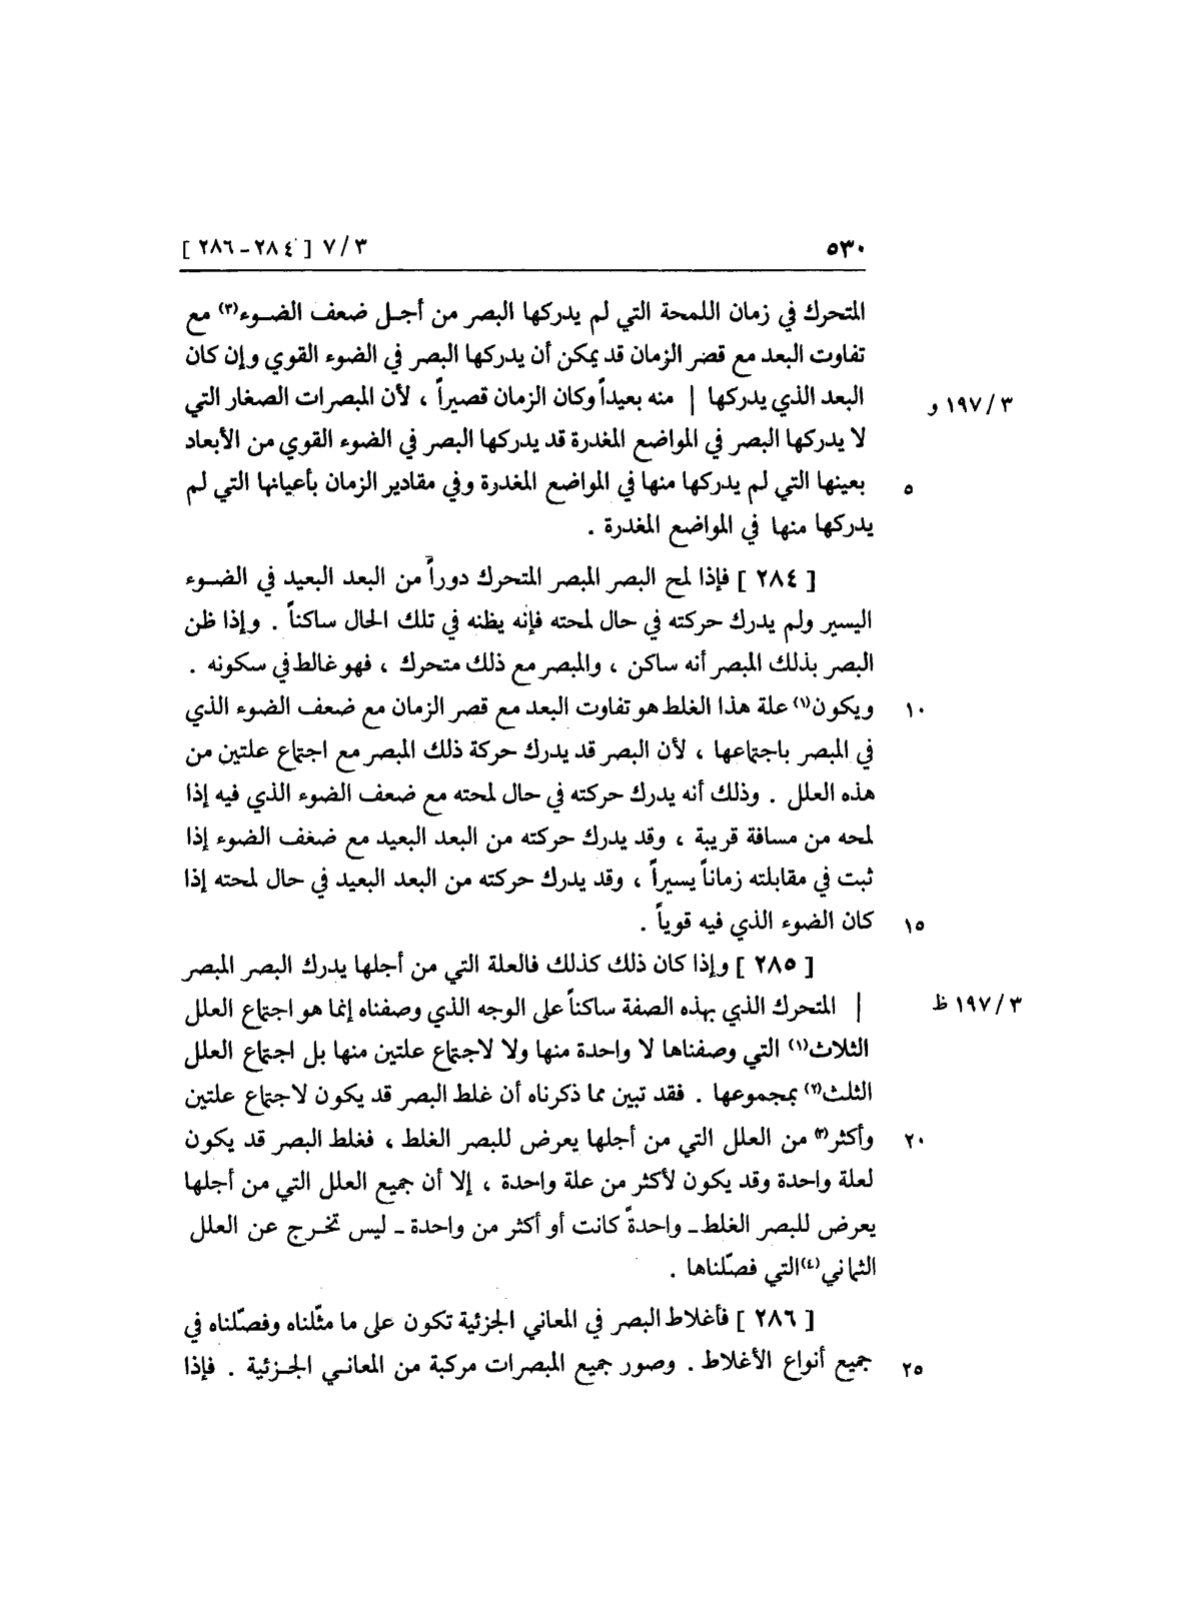 ٥٣٠ ٧/٣ [ ٢٨٤-٢٨٦ ]
المتحرك في زمان اللمحة التي لم يدركها البصر من أجـل ضعف الضـوء(٣) مع
تفاوت البعد مع قصر الزمان قد يمكن أن يدركها البصر في الضوء القوي وإن كان
٣/ ١٩٧ و البعد الذي يدركها | منه بعيداً وكان الزمان قصيراً ، لأن المبصرات الصغار التي
لا يدركها البصر في المواضع المغدرة قد يدركها البصر في الضوء القوي من الأبعاد
٥ بعينها التي لم يدركها منها في المواضع المغدرة وفي مقادير الزمان بأعيانها التي لم
يدركها منها في المواضع المغدرة .
[ ٢٨٤ ] فإذا لمح البصر المبصر المتحرك دوراً من البعد البعيد في الضـوء
اليسير ولم يدرك حركته في حال لمحته فإنه يظنه في تلك الحال ساكناً . وإذا ظن
البصر بذلك المبصر أنه ساكن ، والمبصر مع ذلك متحرك ، فهو غالط في سكونه .
١٠ ويكون(١) علة هذا الغلط هو تفاوت البعد مع قصر الزمان مع ضعف الضوء الذي
في المبصر باجتماعها ، لأن البصر قد يدرك حركة ذلك المبصر مع اجتماع علتين من
هذه العلل . وذلك أنه يدرك حركته في حال لمحته مع ضعف الضوء الذي فيه إذا
لمحه من مسافة قريبة ، وقد يدرك حركته من البعد البعيد مع ضغف الضوء إذا
ثبت في مقابلته زماناً يسيراً ، وقد يدرك حركته من البعد البعيد في حال لمحته إذا
١٥ كان الضوء الذي فيه قوياً .
[ ٢٨٥ ] وإذا كان ذلك كذلك فالعلة التي من أجلها يدرك البصر المبصر
٣/ ١٩٧ ظ | المتحرك الذي بهذه الصفة ساكناً على الوجه الذي وصفناه إنما هو اجتماع العلل
الثلاث(١) التي وصفناها لا واحدة منها ولا لاجتماع علتين منها بل اجتماع العلل
الثلث(٢) بمجموعها . فقد تبين مما ذكرناه أن غلط البصر قد يكون لاجتماع علتين
٢٠ وأكثر(٣) من العلل التي من أجلها يعرض للبصر الغلط ، فغلط البصر قد يكون
لعلة واحدة وقد يكون لأكثر من علة واحدة ، إلا أن جميع العلل التي من أجلها
يعرض للبصر الغلط ـ واحدةً كانت أو أكثر من واحدة ـ ليس تخـرج عن العلل
الثماني(٤) التي فصّلناها .
[ ٢٨٦ ] فأغلاط البصر في المعاني الجزئية تكون على ما مثّلناه وفصّلناه في
٢٥ جميع أنواع الأغلاط . وصور جميع المبصرات مركبة من المعانـي الجـزئية . فإذا